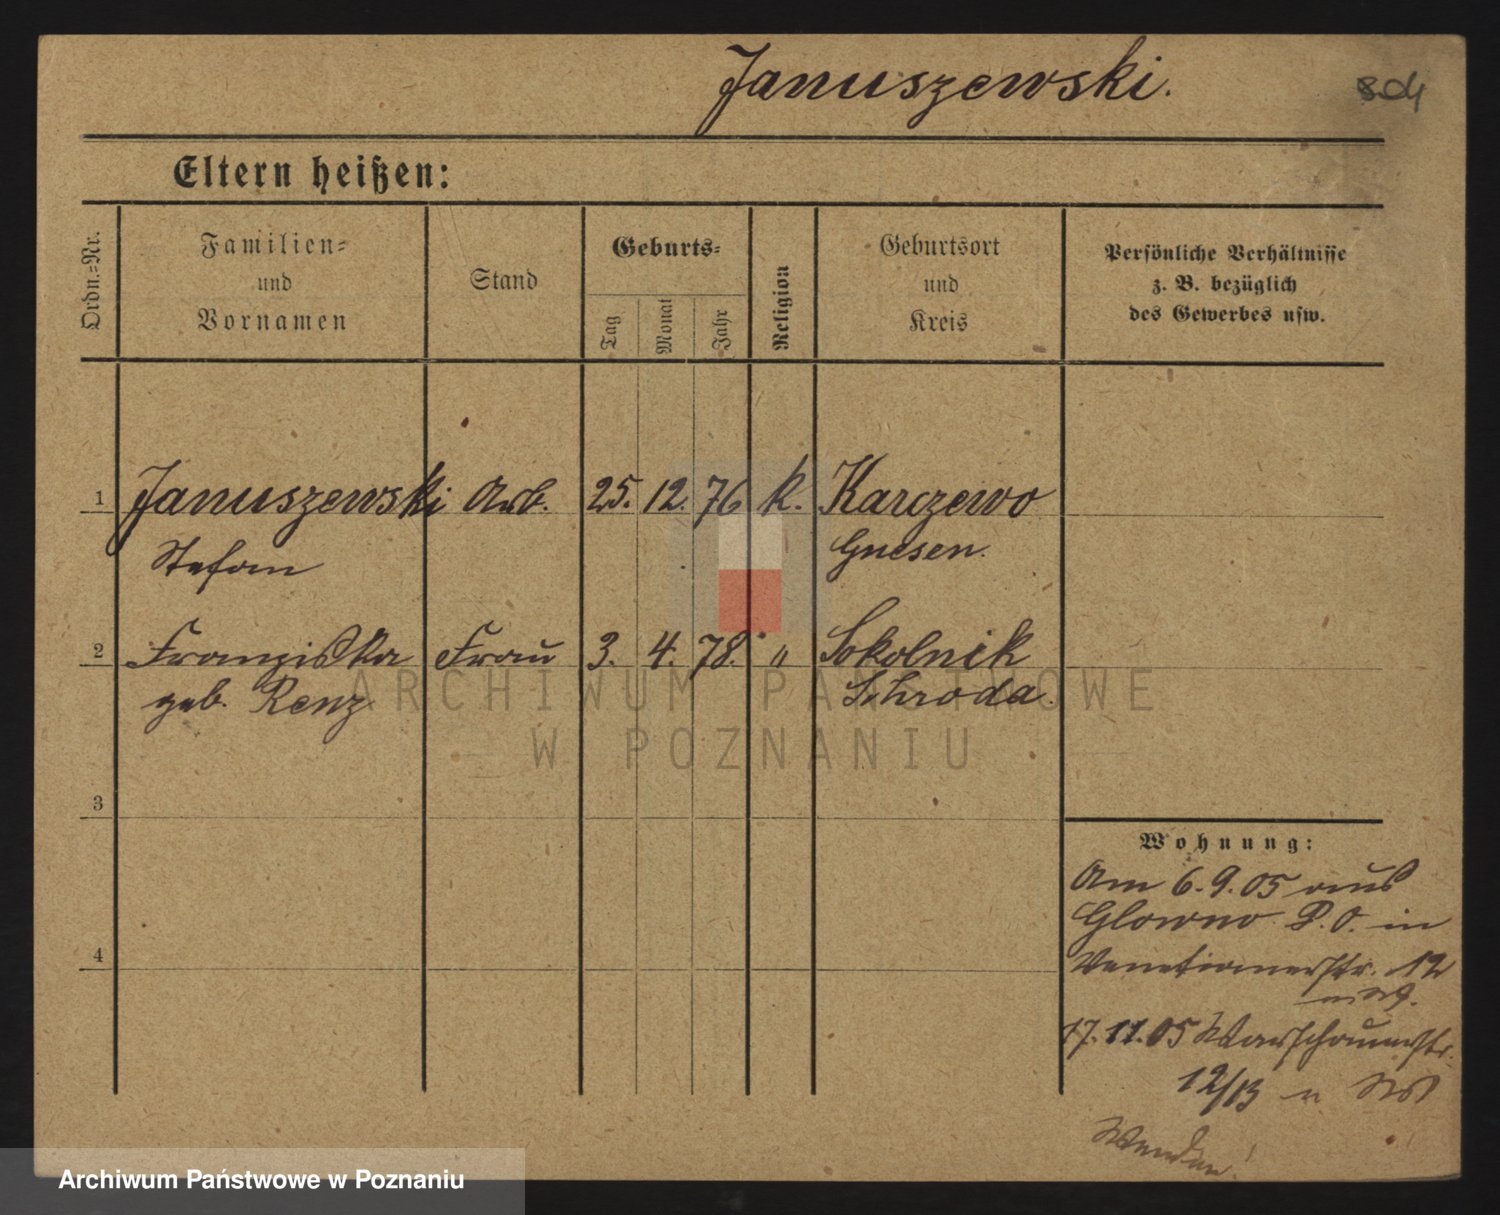 Januszewski.
804
Eltern heißen:
Ordn.-Nr.
Familien-
und
Vornamen
Stand
Geburts-
Tag
Monat
Jahr
Religion
Geburtsort
und
Kreis
Persönliche Verhältnisse
z. B. bezüglich
des Gewerbes usw.
1 Januszewski Arb. 25. 12. 76 k. Karczewo
Stefan Gnesen.
2 Franziska Frau 3. 4. 78. " Sokolnik
geb. Renz Schroda.
3
4
Wohnung:
Am 6.9.05 aus
Glowno P.O. in
Venetianerstr. 12
17.11.05 Warschauerstr.
12/13
Wenden!
ARCHIWUM PAŃSTWOWE
W POZNANIU
Archiwum Państwowe w Poznaniu